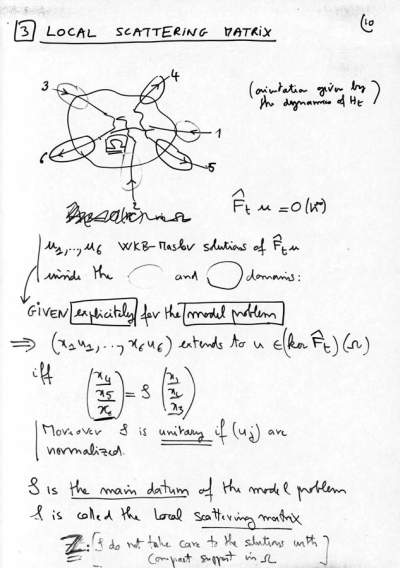 3 LOCAL SCATTERING MATRIX
10
3
4
(orientation given by
the dynamics of Ht)
1
6
Ω
5
2
F̂t u = O(h^∞)
u1,..,u6 WKB-Maslov solutions of F̂t u
inside the and domains:
GIVEN explicitely for the model problem
⇒ (x1u1,..,x6u6) extends to u ∈ (ker F̂t)(Ω)
iff (x4 x5 x6) = S (x1 x2 x3)
Moreover S is unitary if (uj) are
normalized.
S is the main datum of the model problem
S is called the local scattering matrix
Z: [I do not take care to the solutions with
compact support in Ω]